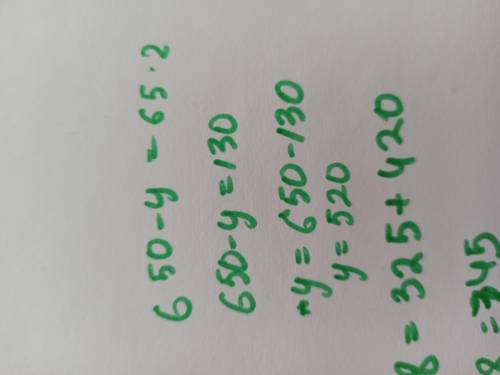 650-y=65·2
650-y=130
y=650-130
y=520
8=325+420
8=745